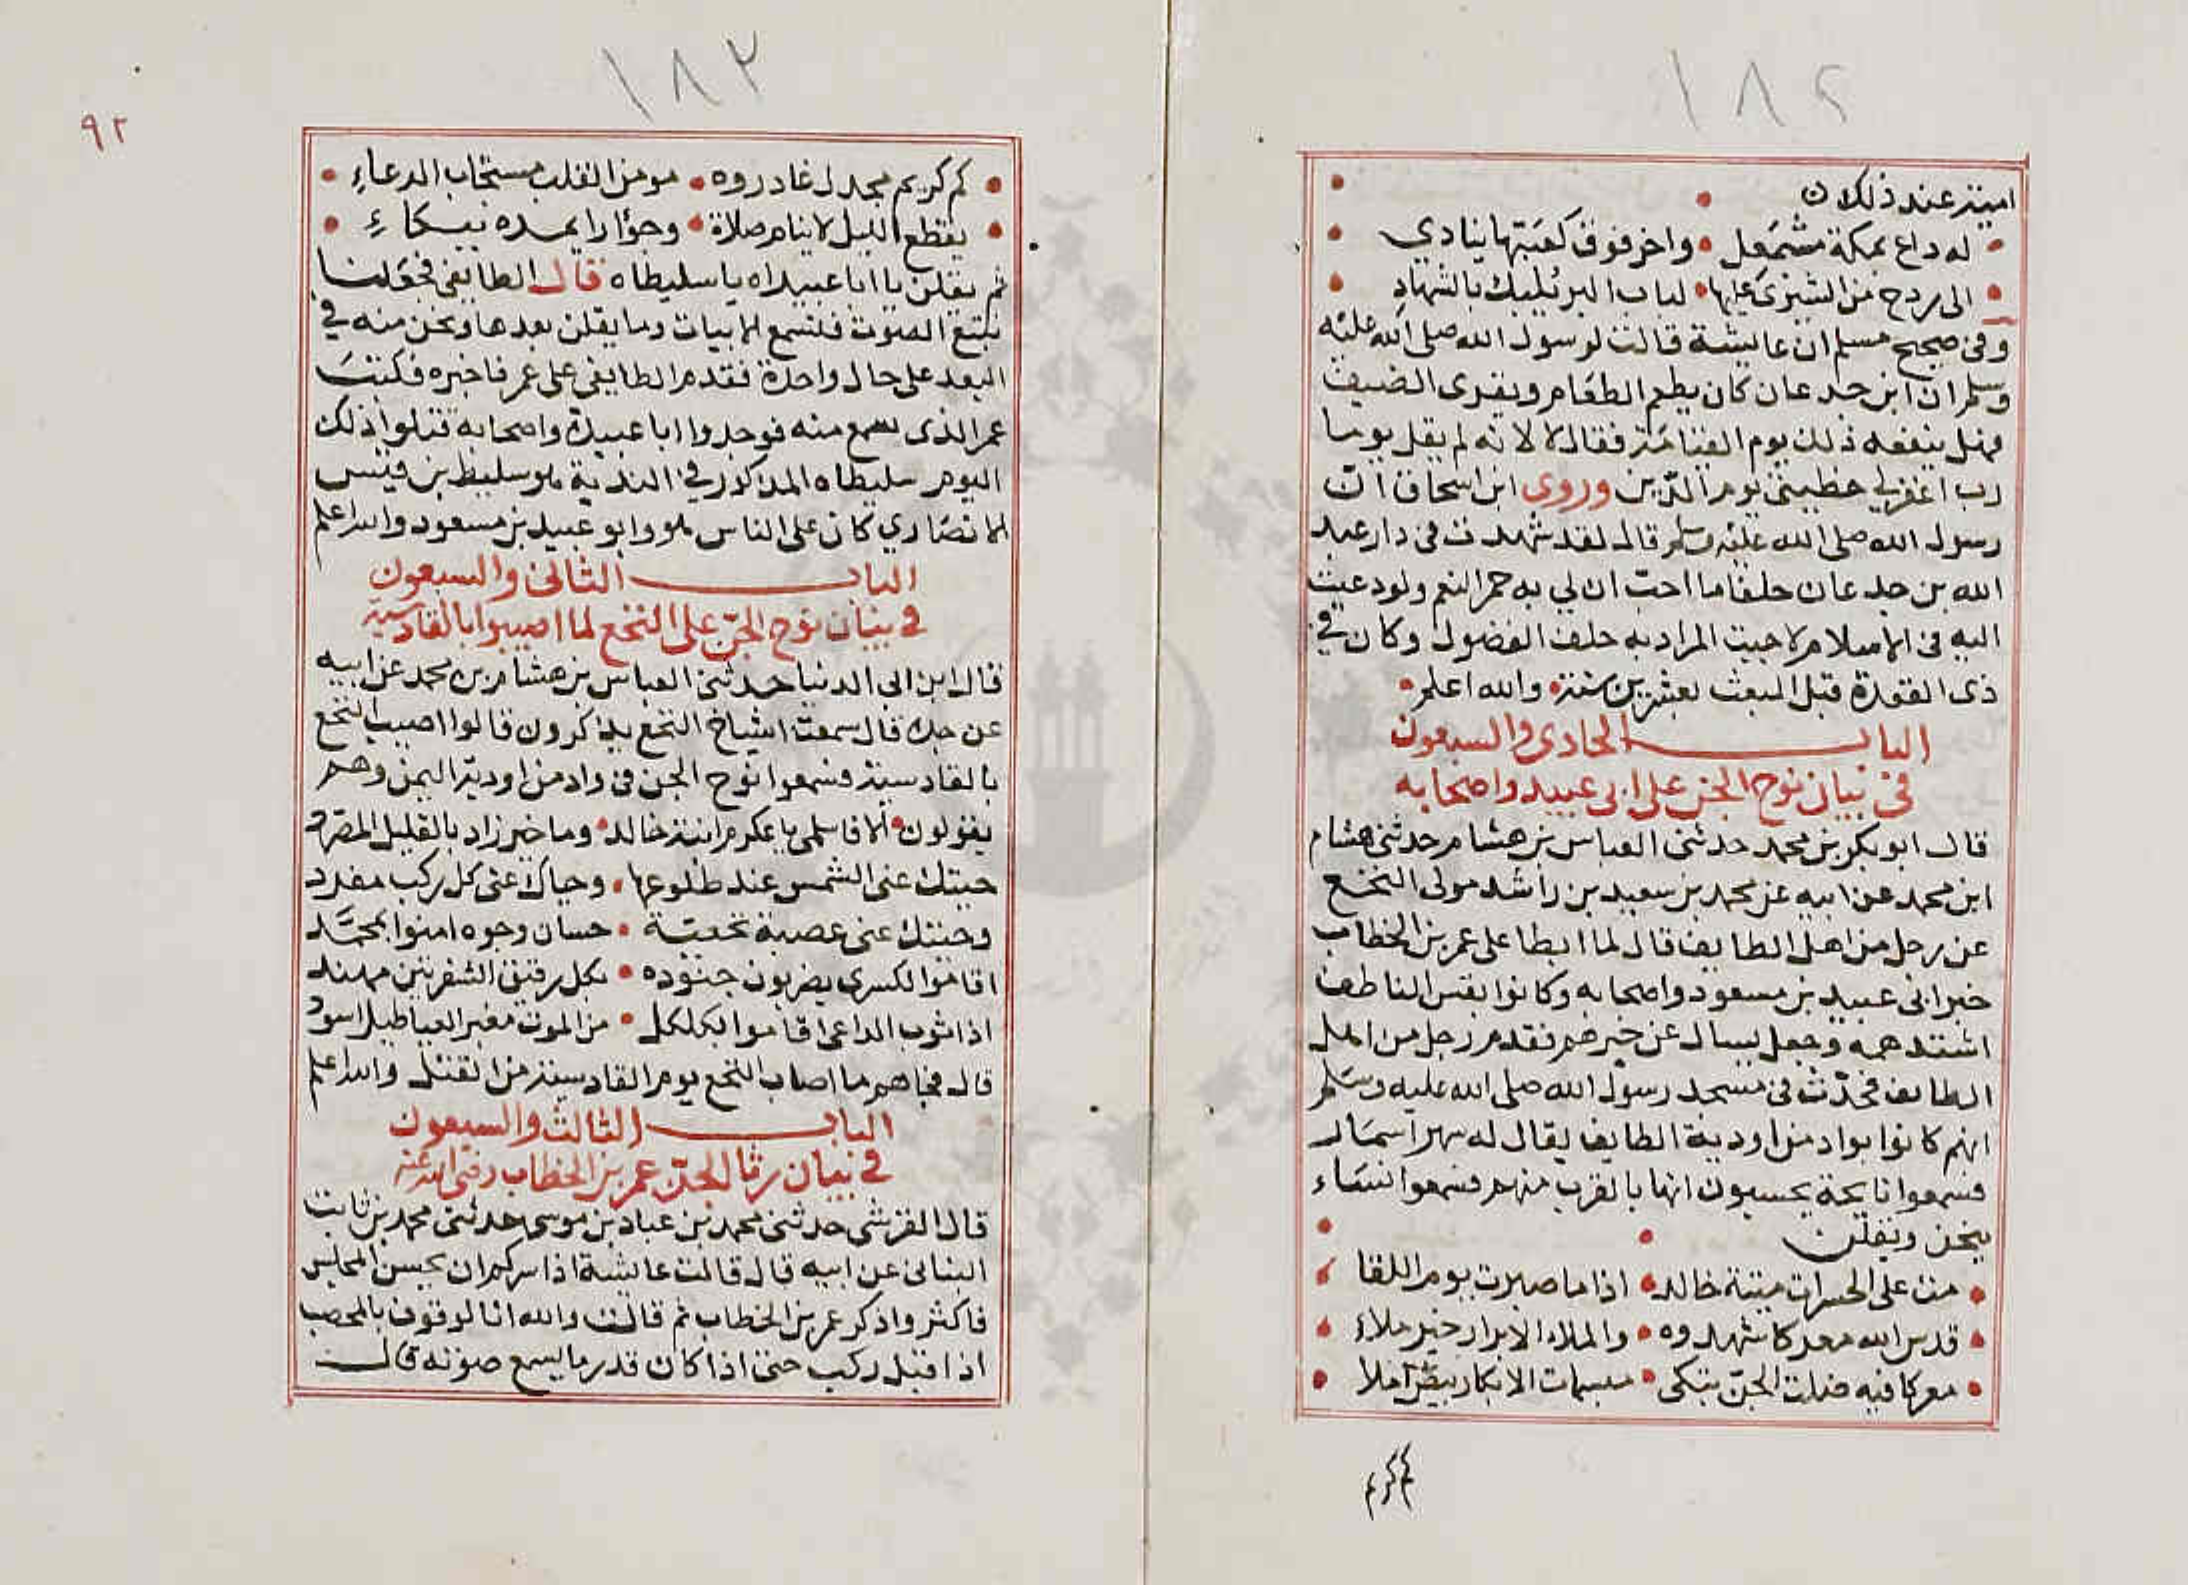 ١٨٢
امية عند ذلك الان
له داع بمكة مشمعل واخر فوق كعبتها ينادي
الى ردح من الشيزى عليها لباب البر يلبك بالشهاد
وفى صحيح مسلم ان عايشة قالت لرسول الله صلى الله عليه
وسلم ان ابن جدعان كان يطعم الطعام ويقرى الضيف
فهل ينفعه ذلك يوم القيامة فقال لا لانه لم يقل يوما
رب اغفر لي خطيئتى يوم الدين وروى ابن اسحاق ان
رسول الله صلى الله عليه وسلم قال لقد شهدت فى دار عبد
الله بن جدعان حلفا ما احب ان لي به حمر النعم ولو دعيت
اليه فى الاسلام لاجبت المراد به حلف الفضول وكان في
ذى القعدة قبل البعث بعشرين سنة والله اعلم
الباب الحادى والسبعون
فى بيان نوح الجن على ابى عبيد واصحابه
قال ابو بكر بن محمد حدثنى العباس بن هشام حدثنى هشام
ابن محمد عن ابيه عن محمد بن سعيد بن راشد مولى النخع
عن رجل من اهل الطايف قال لما ابطا على عمر بن الخطاب
خبر ابى عبيد بن مسعود واصحابه وكانوا بقس الناطف
اشتد همه وجعل يسال عن خبرهم فقدم رجل من اهل
الطايف فحدث فى مسجد رسول الله صلى الله عليه وسلم
انهم كانوا بواد من اودية الطايف يقال له سهر اسمار
فسمعوا نايحة يحسبون انها بالقرب منهم فسمعوا نساء
ينحن ويقلن
مت على الخيرات ميتة خالد اذا ما صبرت يوم اللقا
قدس الله معركا شهدوه والملاء الابرار خير ملاء
معركا فيه ضلت الجن تبكى مبسمات الابكار بيض املا
كم كريم
١٨٣
٩٢
كم كريم مجدل غادروه مومن القلب مستجاب الدعاء
يقطع الليل لا ينام صلاة وجؤارا يمده ببكاء
ثم يقلن يا ابا عبيداه يا سليطاه قال الطايفى فجعلنا
نتبع الصوت فنسمع الابيات وما يقلن بعدها ونحن منه في
البعد على حال واحدة فقدم الطايفى على عمر فاخبره فكتب
عمر الذى سمع منه فوجدوا ابا عبيدة واصحابه قتلوا ذلك
اليوم سليطاه المذكور في الندبة هو سليط بن قيس
الانصاري كان على الناس هو وابو عبيد بن مسعود والله اعلم
الباب الثانى والسبعون
في بيان نوح الجن على النخع لما اصيبوا بالقادسية
قال ابن ابى الدنيا حدثنى العباس بن هشام بن محمد عن ابيه
عن جده قال سمعت اشياخ النخع يذاكرون قالوا اصيب النخع
بالقادسية فسمعوا نوح الجن فى واد من اودية اليمن وهم
يقولون الا فاسلمى يا عكرم ابنة خالد وما خير زاد بالقليل المصرد
حيتك عنى الشمس عند طلوعها وحياك عنى كل ركب مفرد
وحيتك عنى عصبة نخعية حسان وجوه امنوا بمحمد
اقاموا لكسرى يضربون جنوده بكل رقيق الشفرتين مهند
اذا ثوب الداعى اقاموا بكلكل من الموت مغبر العياطيل اسود
قال فجاهم ما اصاب النخع يوم القادسية من القتل والله اعلم
الباب الثالث والسبعون
في بيان رثا الجن عمر بن الخطاب رضى الله عنه
قال القرشى حدثنى محمد بن عباد بن موسى حدثنى محمد بن ثابت
البنانى عن ابيه قال قالت عايشة اذا سركم ان يحسن المجلس
فاكثروا ذكر عمر بن الخطاب ثم قالت والله انا لوقوف بالمحصب
اذ اقبل ركب حتى اذا كان قدر ما يسمع صوته قالت